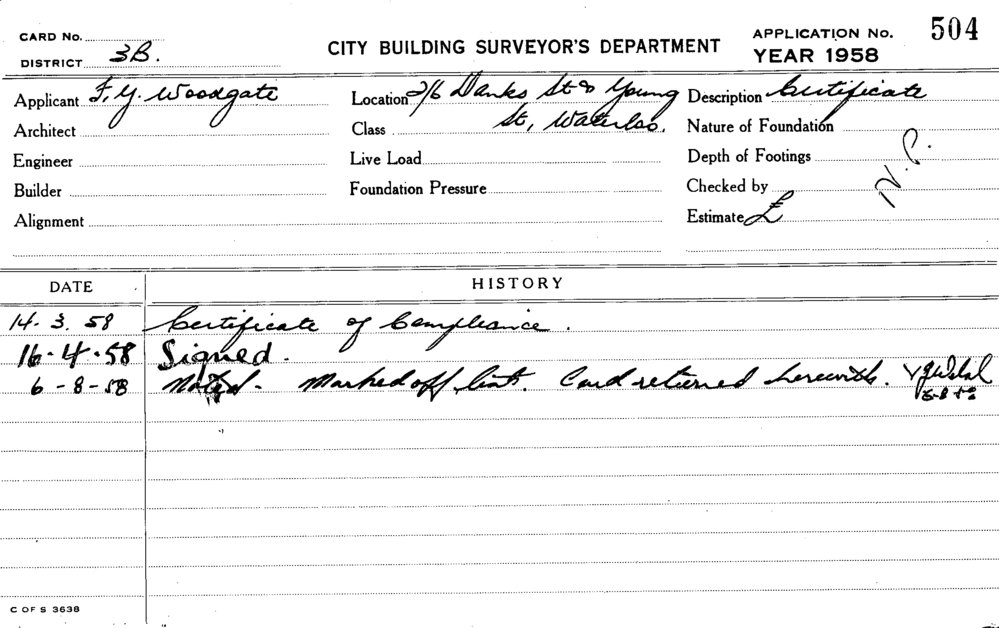 CARD No.
DISTRICT 3B.
CITY BUILDING SURVEYOR'S DEPARTMENT
APPLICATION No. 504
YEAR 1958
Applicant F. Y. Woodgate
Architect
Engineer
Builder
Alignment
Location 2/6 Danks St & Young
St, Waterloo.
Class
Live Load
Foundation Pressure
Description Certificate
Nature of Foundation
Depth of Footings
Checked by
Estimate £
N.P.
DATE HISTORY
14. 3. 58 Certificate of Compliance.
16-4-58 Signed.
6-8-58 Noted. Marked off list. Card returned herewith.
C OF S 3638